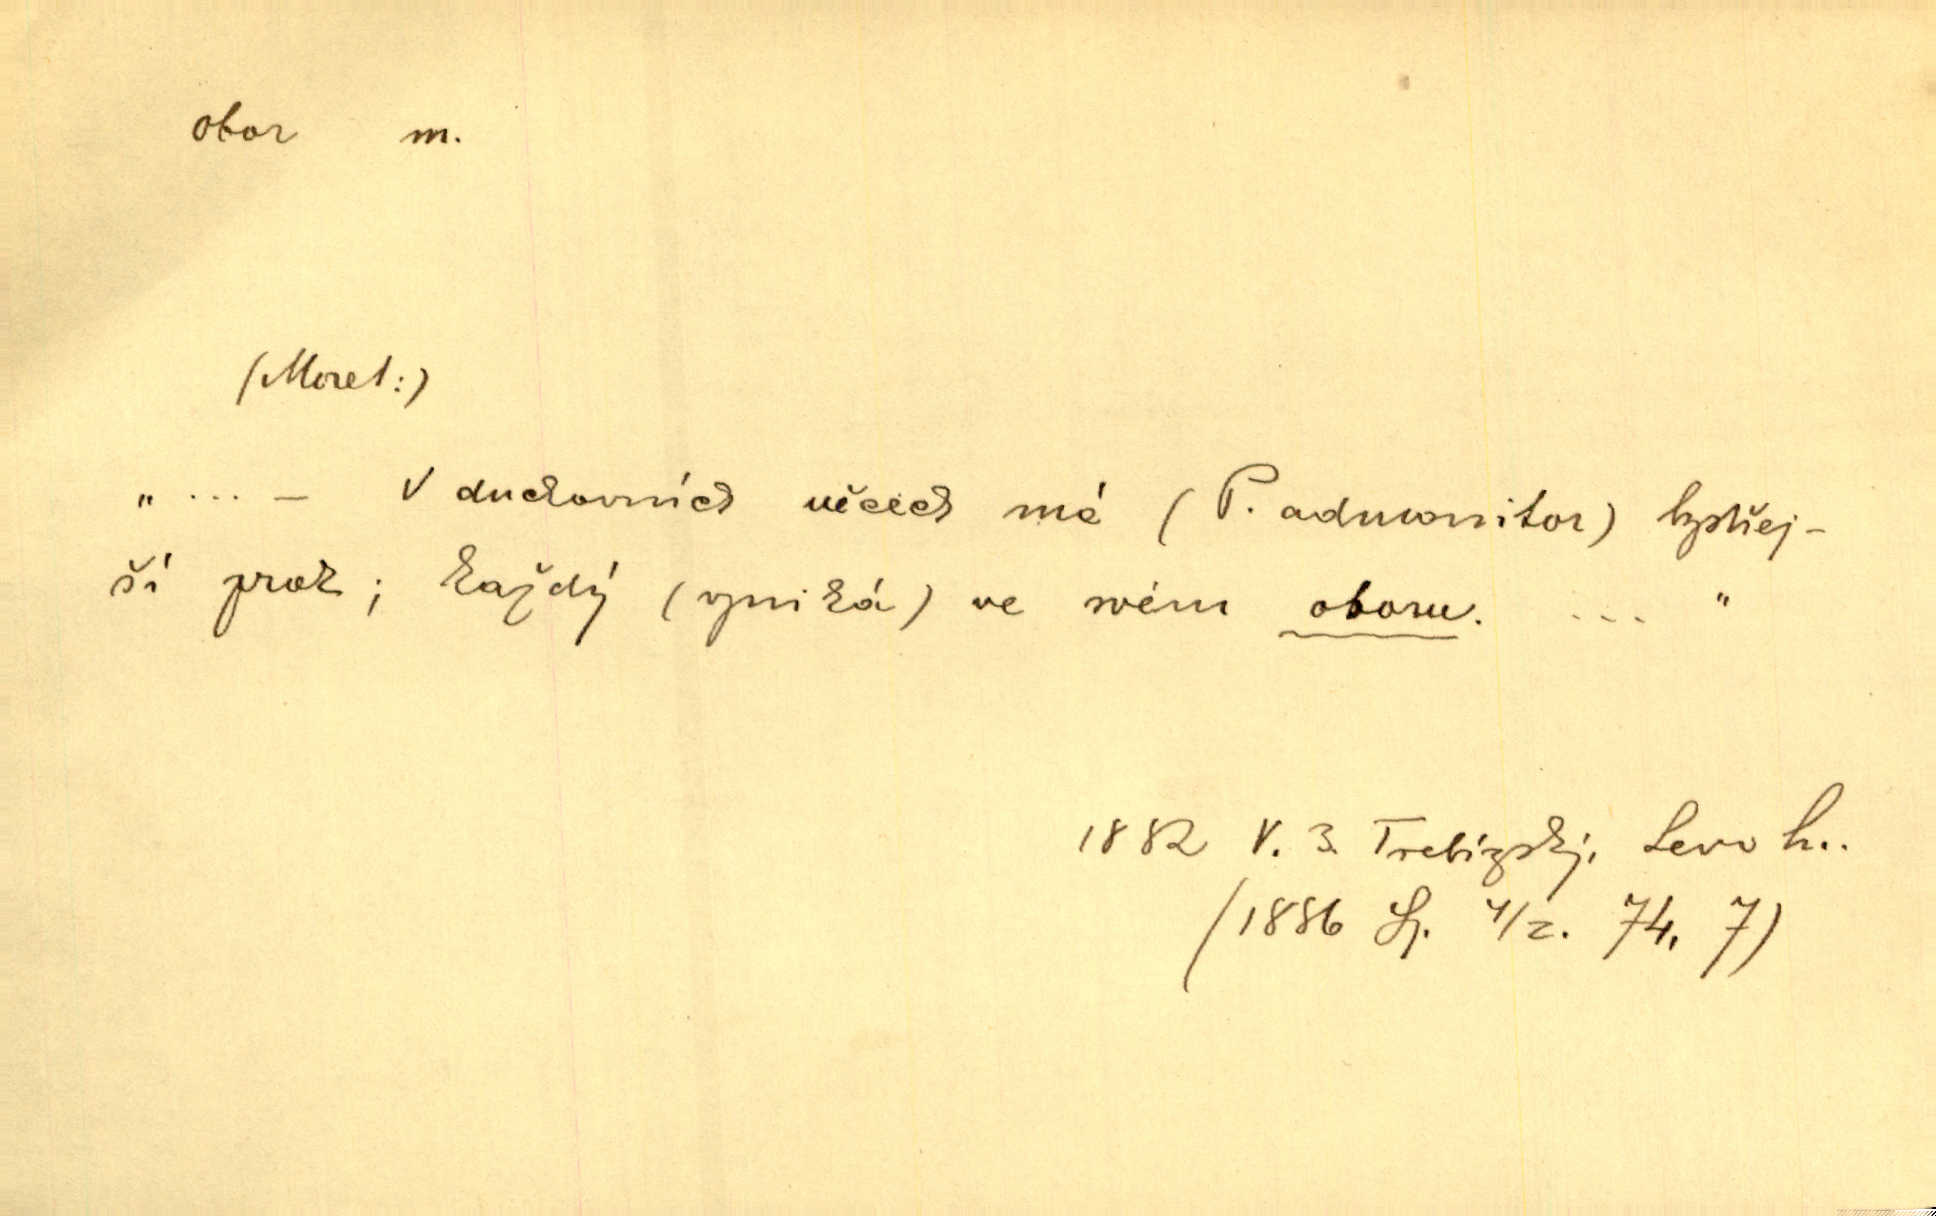 obor m.
(Moret:)
„ ... – V duchovních věcech má (P. admonitor) bystřej-
ší zrak; každý (vyniká) ve svém oboru. ... "
1882 V. B. Třebízský, Levo h..
(1886 Sp. 4/2. 74, 7)